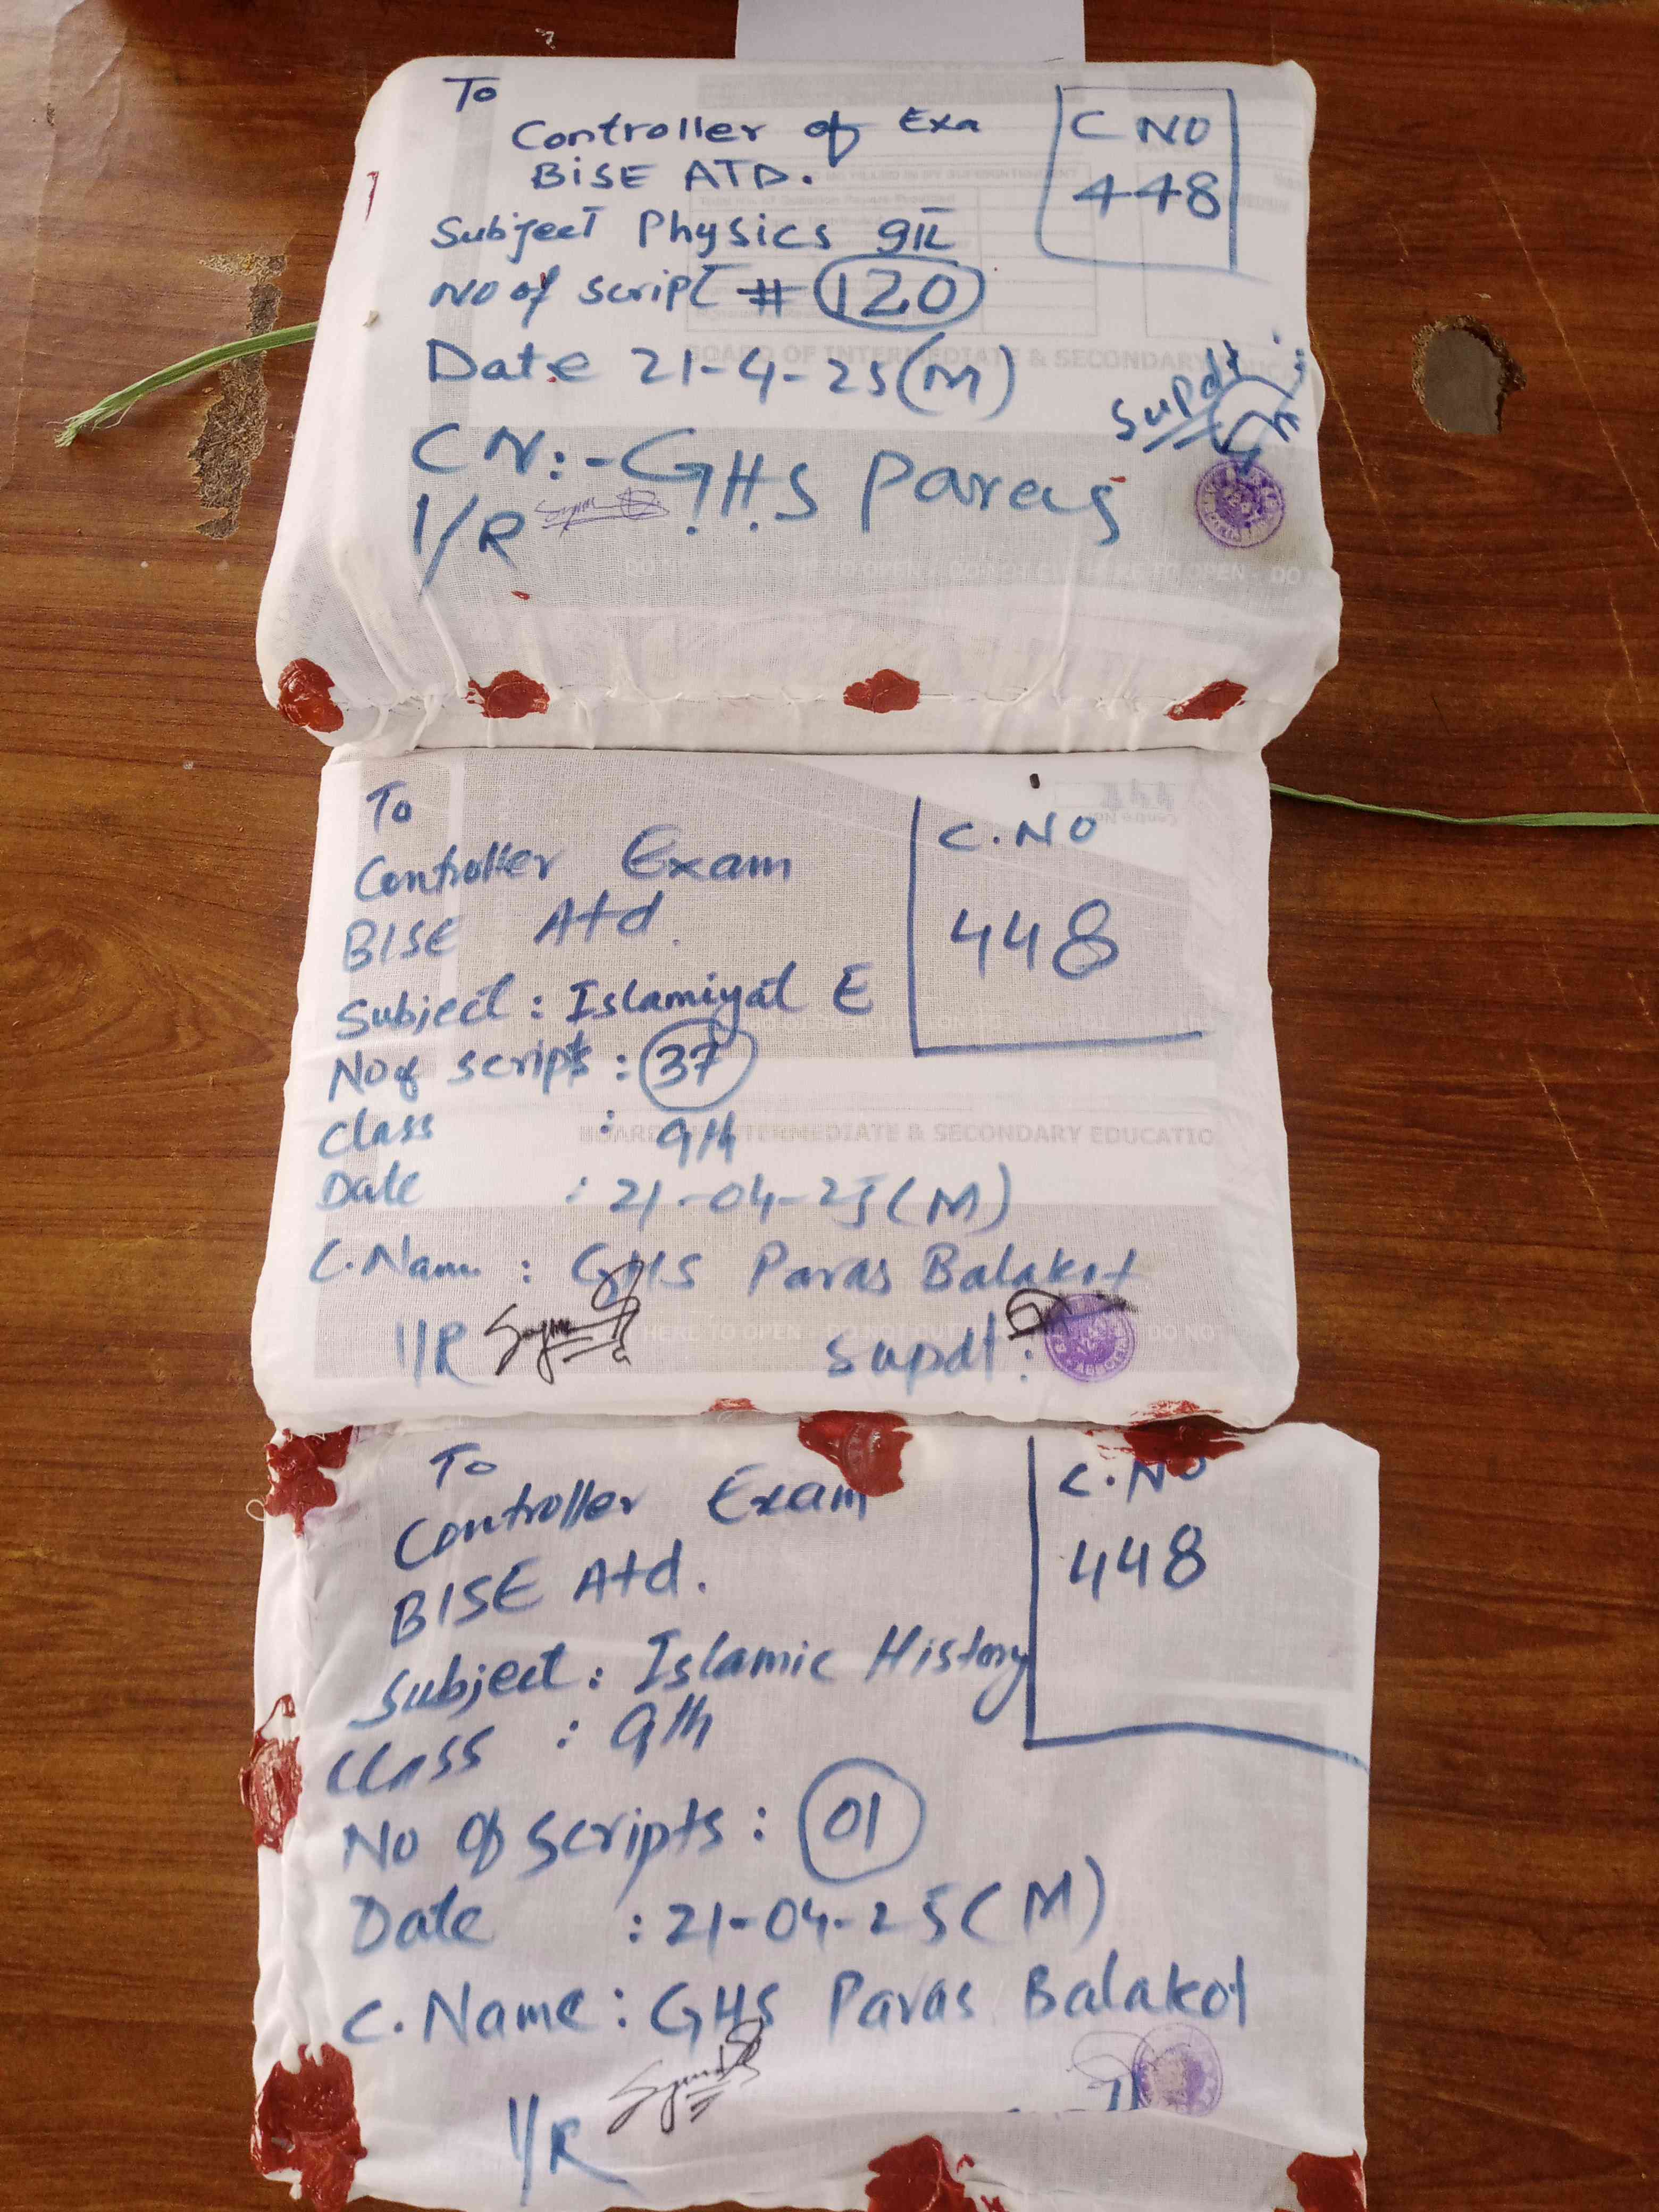 To
Controller of Exa
BISE ATD.
C NO
448
Subject Physics 9th
No of script # 120
Date 21-4-25(M)
Supdt
CN:- G.H.S Paras
I/R
BOARD OF INTERMEDIATE & SECONDARY
TO OPEN - DO
To
Controller Exam
BISE Atd.
C.NO
448
Subject: Islamiyat E
No of scripts: 37
Class : 9th
BOARD INTERMEDIATE & SECONDARY EDUCATIO
Date : 21-04-25(M)
C.Nam : GHS Paras Balakot
HERE TO OPEN - DO NO
I/R
Supdt:
To
Controller Exam
BISE Atd.
C.NO
448
Subject: Islamic History
Class : 9th
No Of Scripts: 01
Date : 21-04-25(M)
C.Name: GHS Paras Balakot
I/R